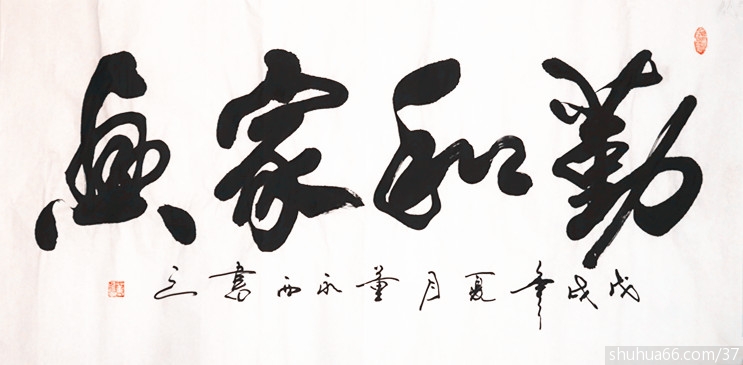 勤和家興
戊戌年夏月董永西書之
shuhua66.com/37